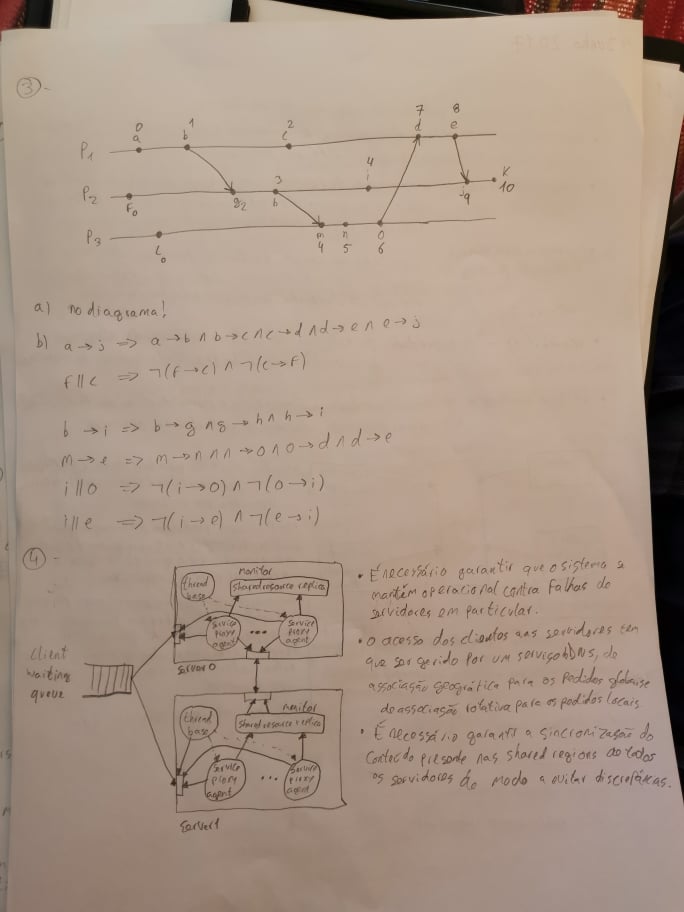 ③-
0 1 2 7 8
a b c d e
P1
3 4
P2 F0 g2 h i j9 K 10
P3 L0 m n o
4 5 6
a) no diagrama!
b) a → j => a → b ∧ b → c ∧ c → d ∧ d → e ∧ e → j
f || c => ¬(f → c) ∧ ¬(c → f)
b → i => b → g ∧ g → h ∧ h → i
m → e => m → n ∧ n → o ∧ o → d ∧ d → e
i || o => ¬(i → o) ∧ ¬(o → i)
i || e => ¬(i → e) ∧ ¬(e → i)
④-
Client
waiting
queue
monitor
thread
base
shared resource replica
service
proxy
agent
...
service
proxy
agent
Server0
monitor
thread
base
shared resource replica
service
proxy
agent
...
service
proxy
agent
Server1
• É necessário garantir que o sistema se
mantém operacional contra falhas de
servidores em particular.
• o acesso dos clientes aos servidores tem
que ser gerido por um serviço DNS, de
associação geográfica para os pedidos globais e
de associação rotativa para os pedidos locais.
• É necessário garantir a sincronização do
conteúdo presente nas shared regions de todos
os servidores de modo a evitar discrepâncias.